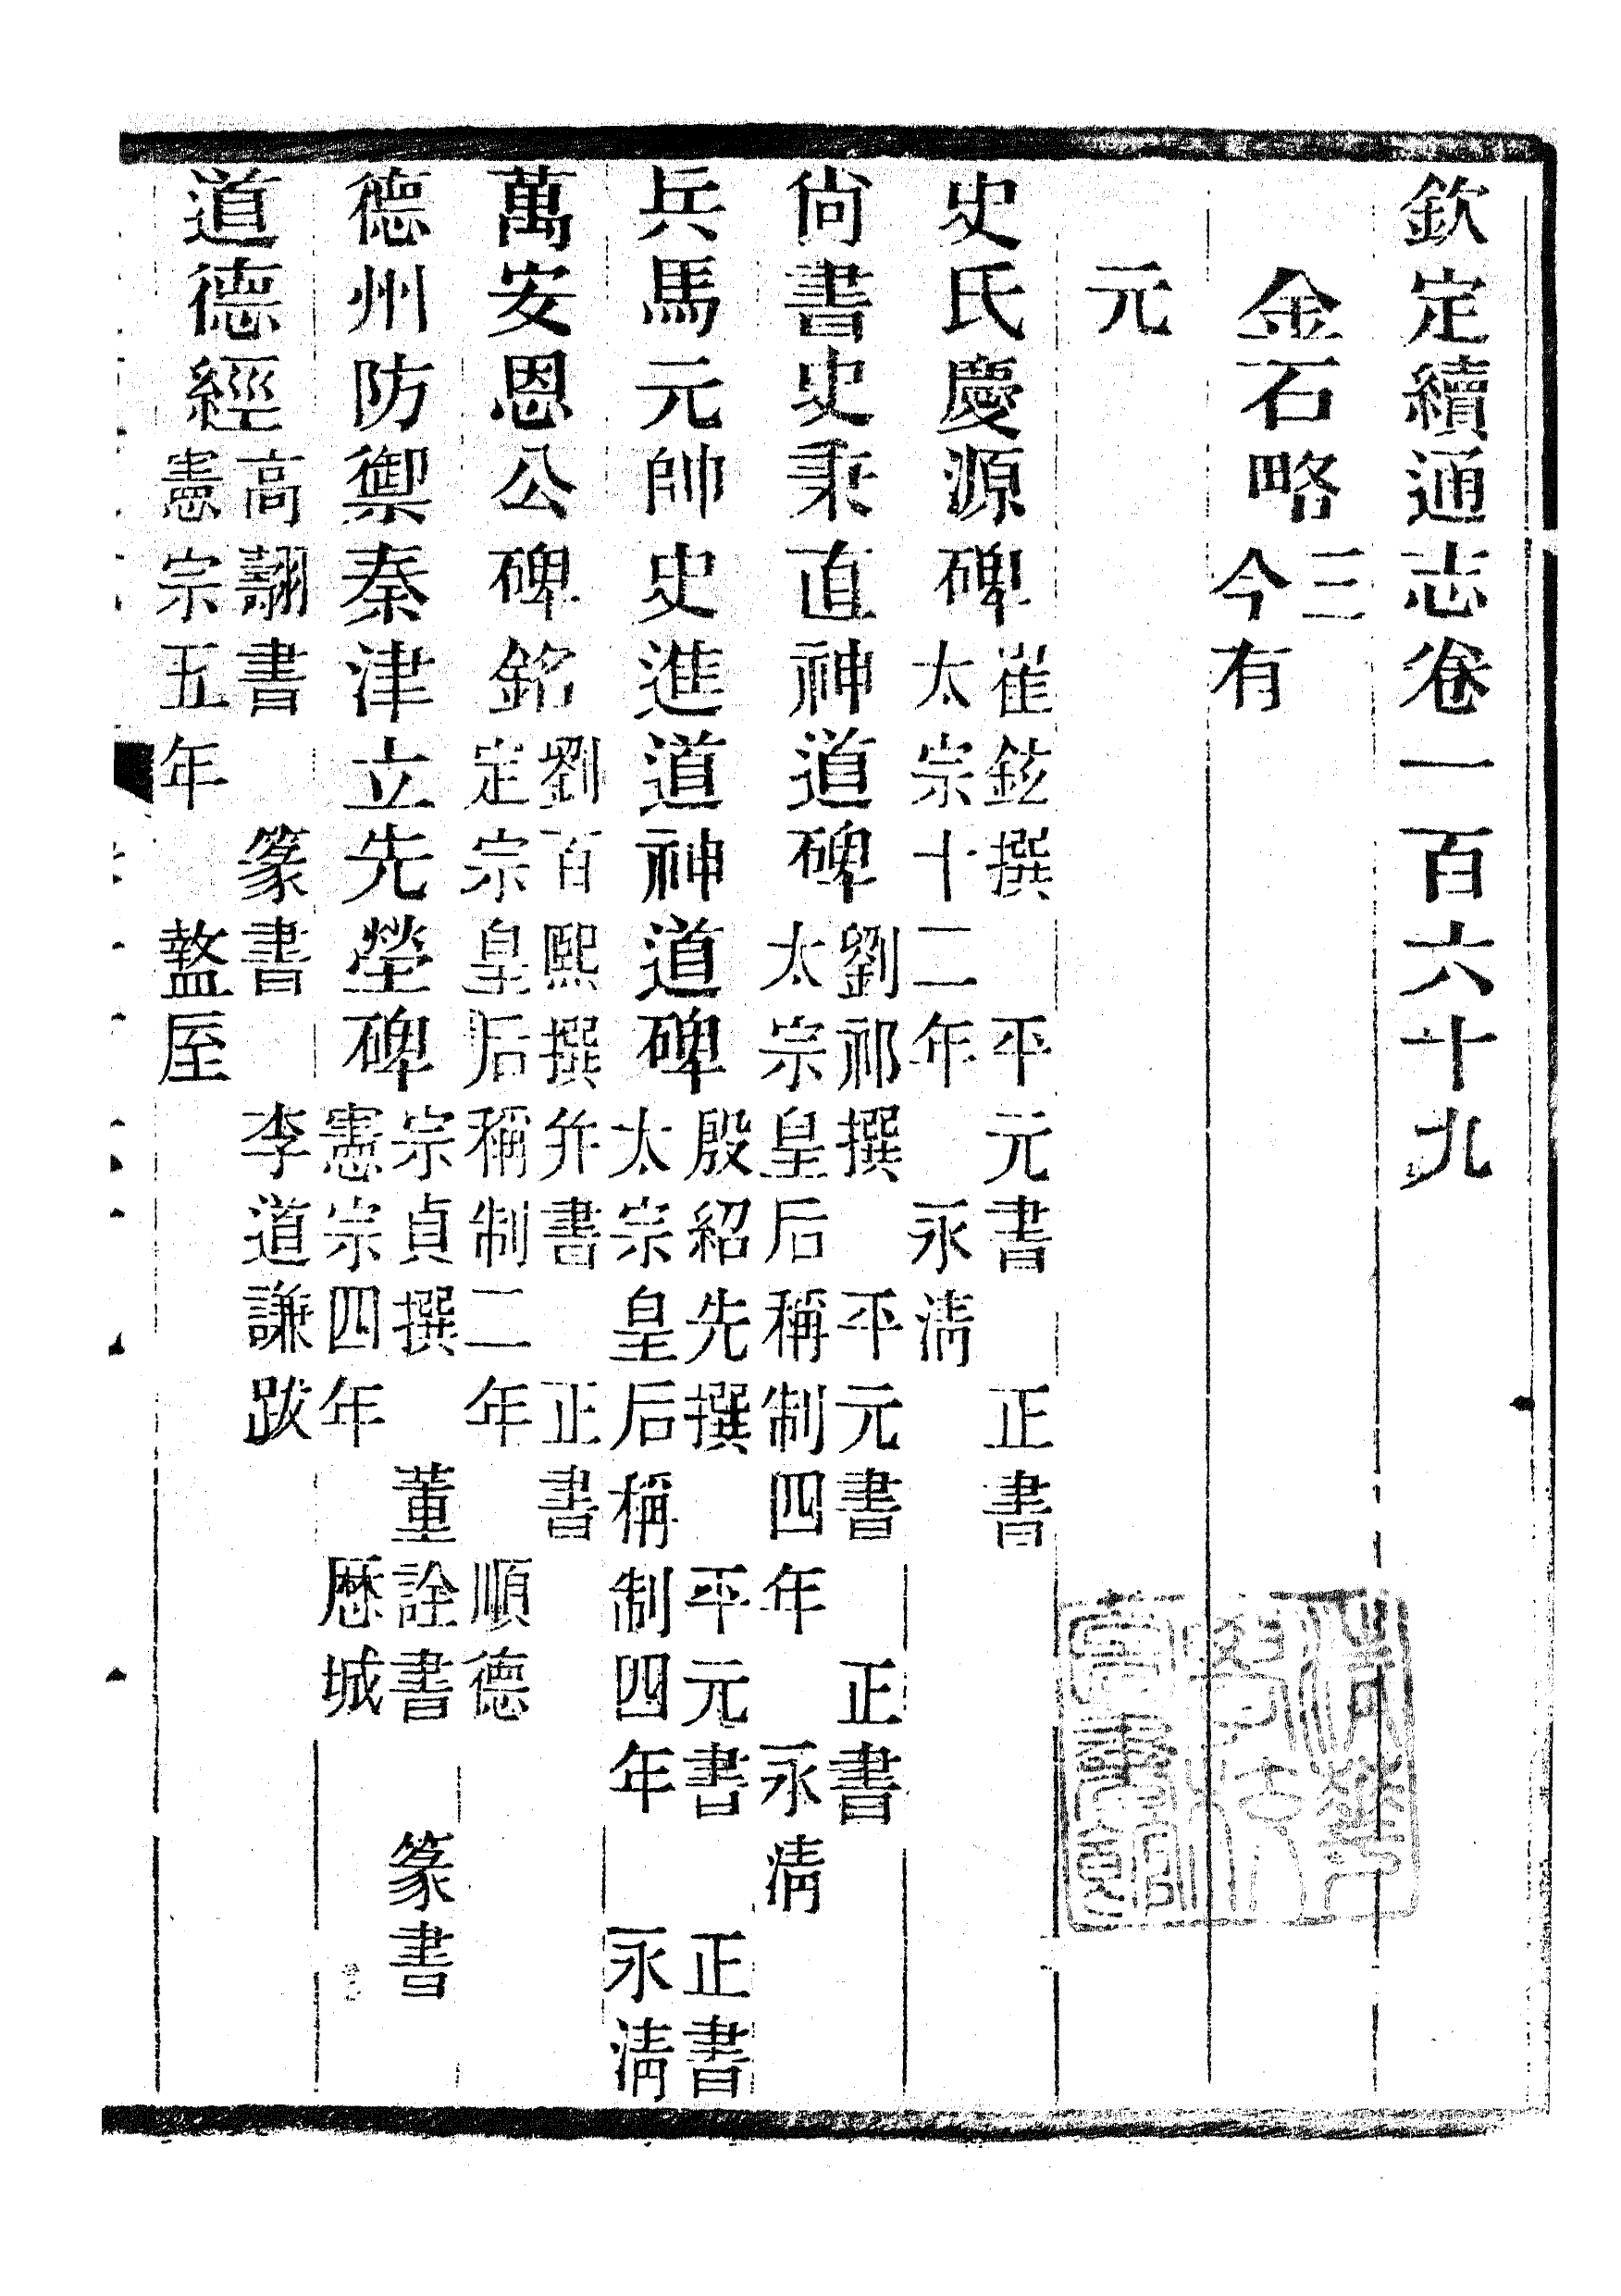 欽定續通志卷一百六十九
金石略三今有
元
史氏慶源碑崔鉉撰 平元書 正書太宗十二年 永清
尚書史秉直神道碑劉祁撰 平元書 正書太宗皇后稱制四年 永清
兵馬元帥史進道神道碑殷紹先撰 平元書 正書太宗皇后稱制四年 永清
萬安恩公碑銘劉百熙撰并書 正書定宗皇后稱制二年 順德
德州防禦秦津立先塋碑宗貞撰 董詮書 篆書憲宗四年 歷城
道德經高翿書 篆書 李道謙跋憲宗五年 盩厔